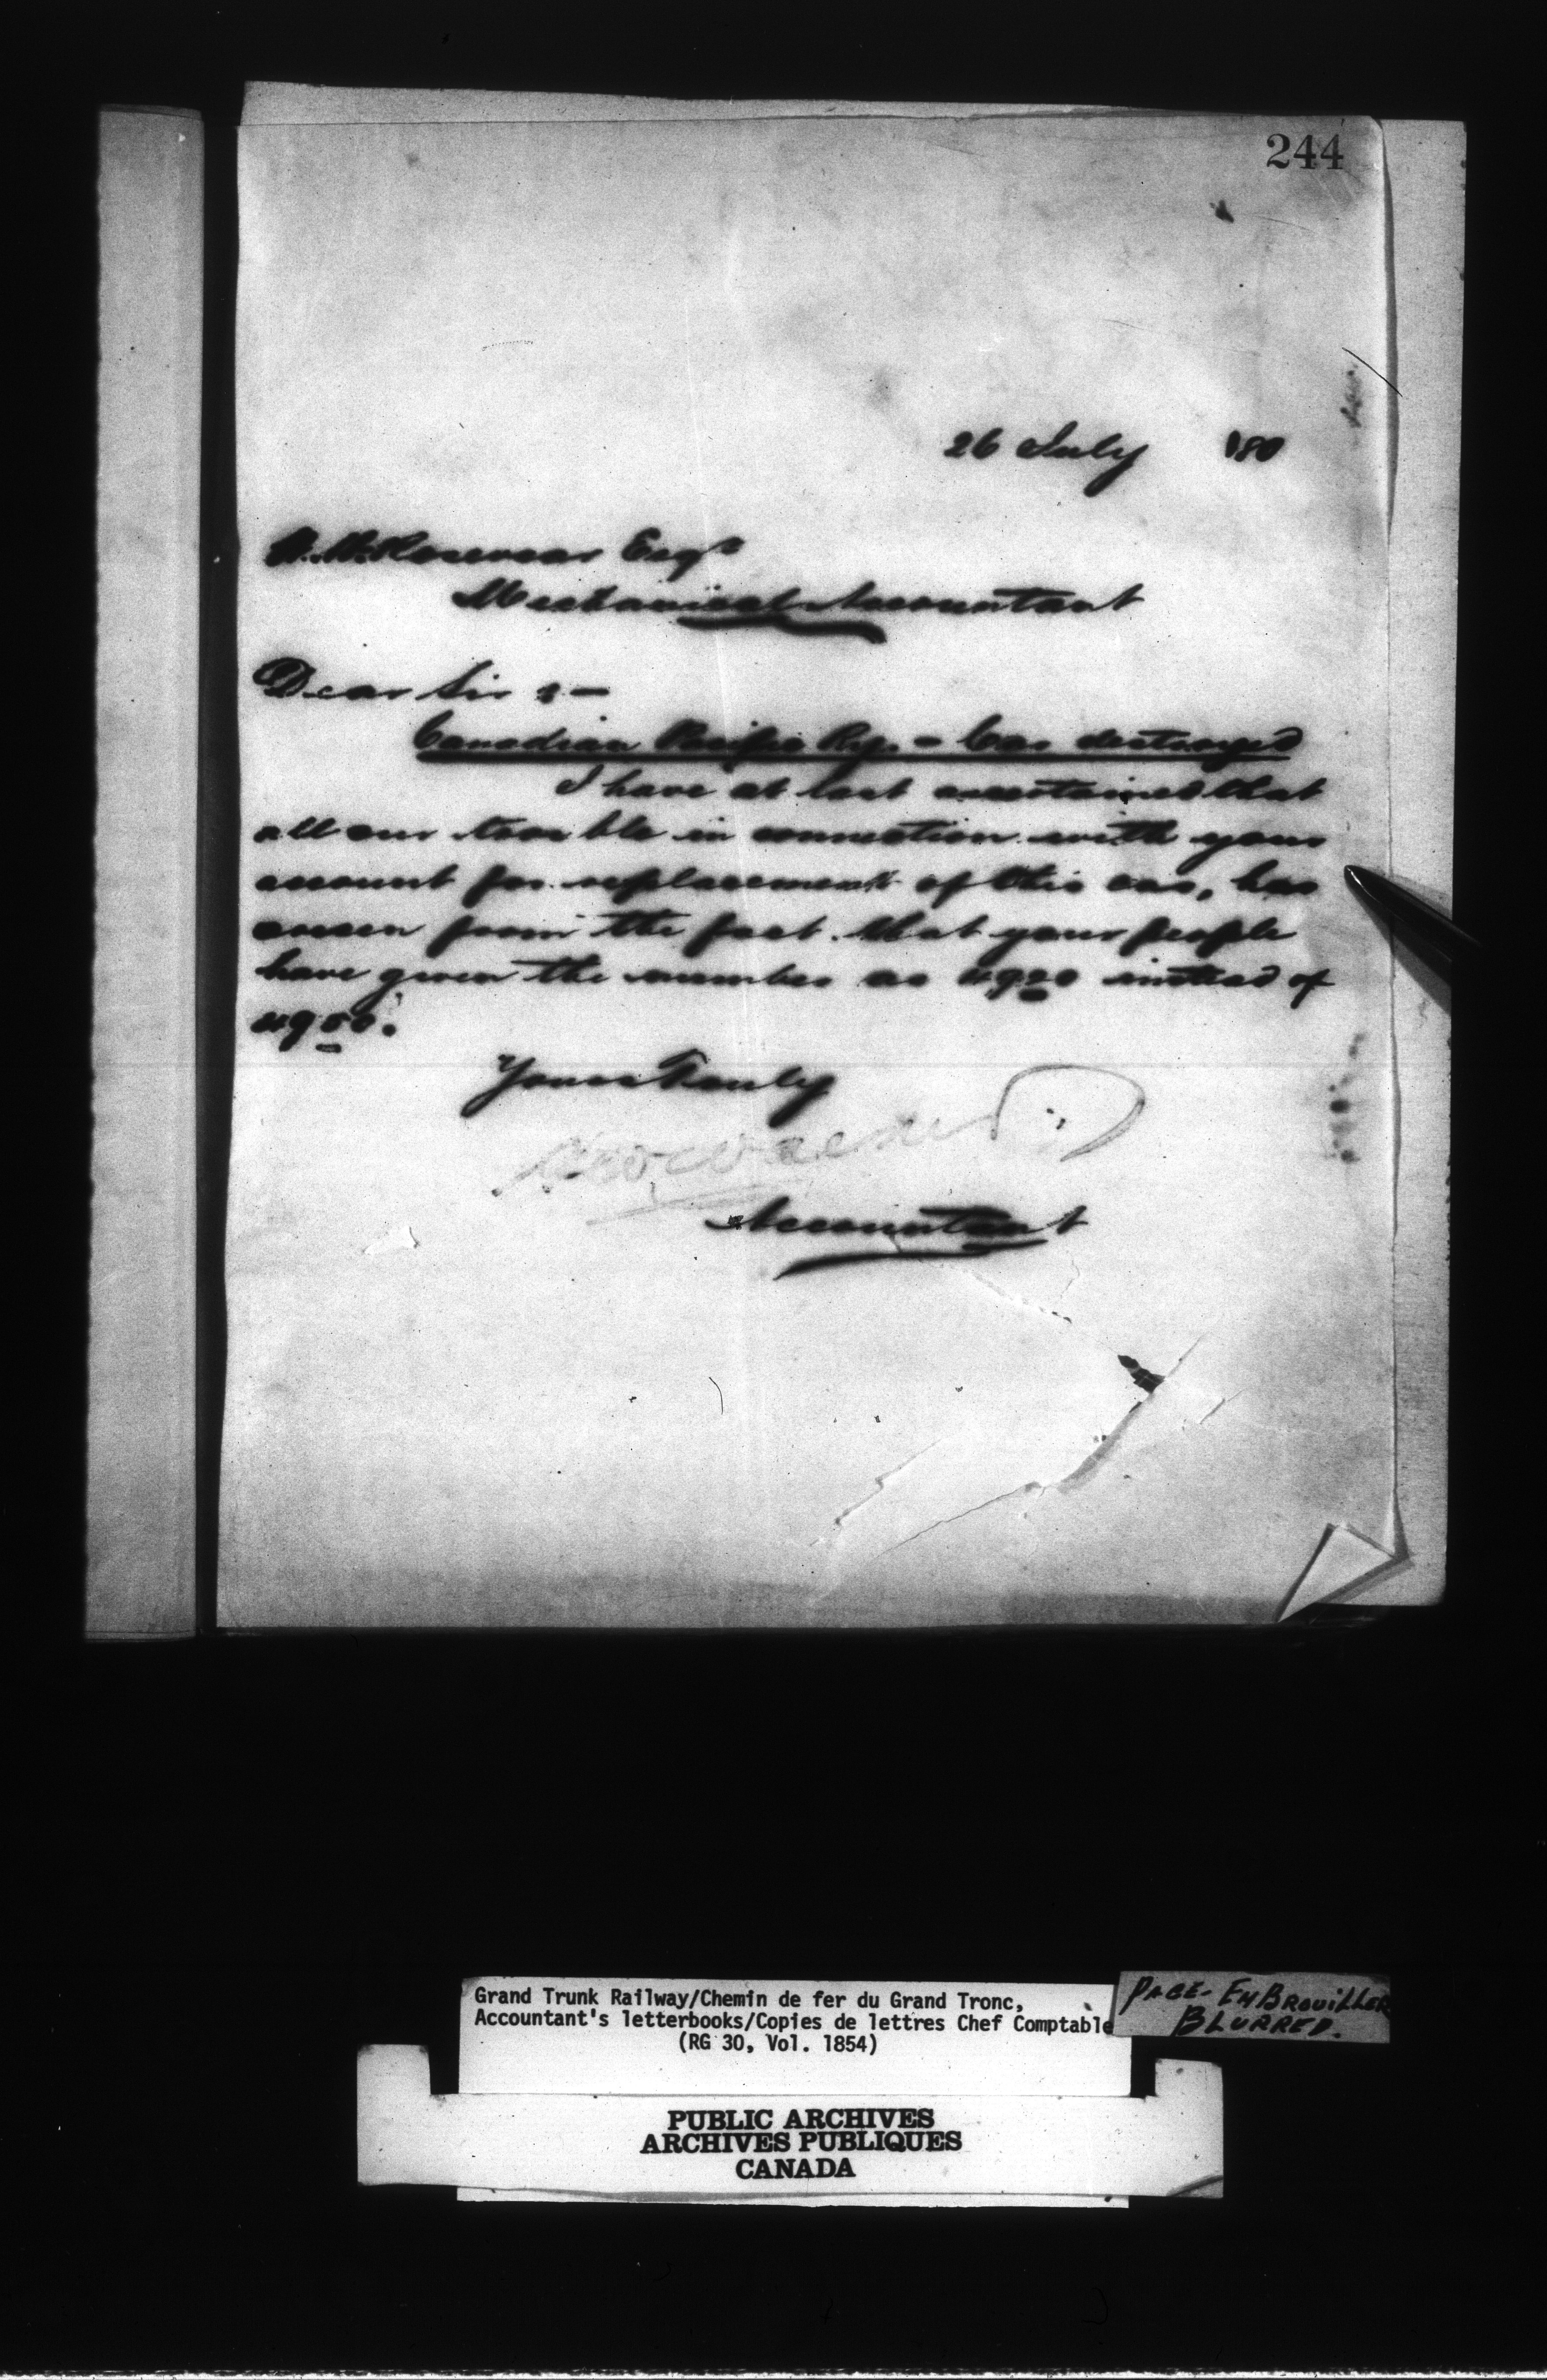 244
26 July '80
Esqr
Mechanical Accountant
Dear Sir :—
Canadian Pacific Ry. - Car destroyed
I have at last ascertained that
all our trouble in connection with your
account for replacement of this car, has
arisen from the fact that your people
have given the number as 4920 instead of
4950.
Yours Truly
Accountant
Grand Trunk Railway/Chemin de fer du Grand Tronc,
Accountant's letterbooks/Copies de lettres Chef Comptable
(RG 30, Vol. 1854)
PAGE - EMBROUILLER
BLURRED.
PUBLIC ARCHIVES
ARCHIVES PUBLIQUES
CANADA